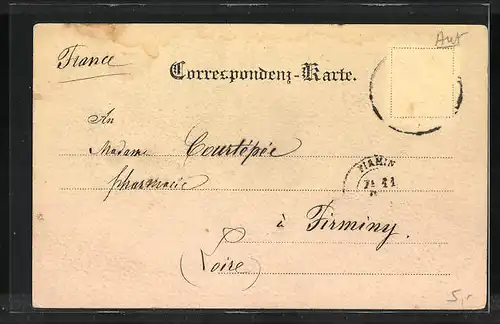 Aut
France
Correspondenz-Karte.
An
Madame Courtépée
pharmacie
FIRMIN
à Firminy.
(Loire)
5,-